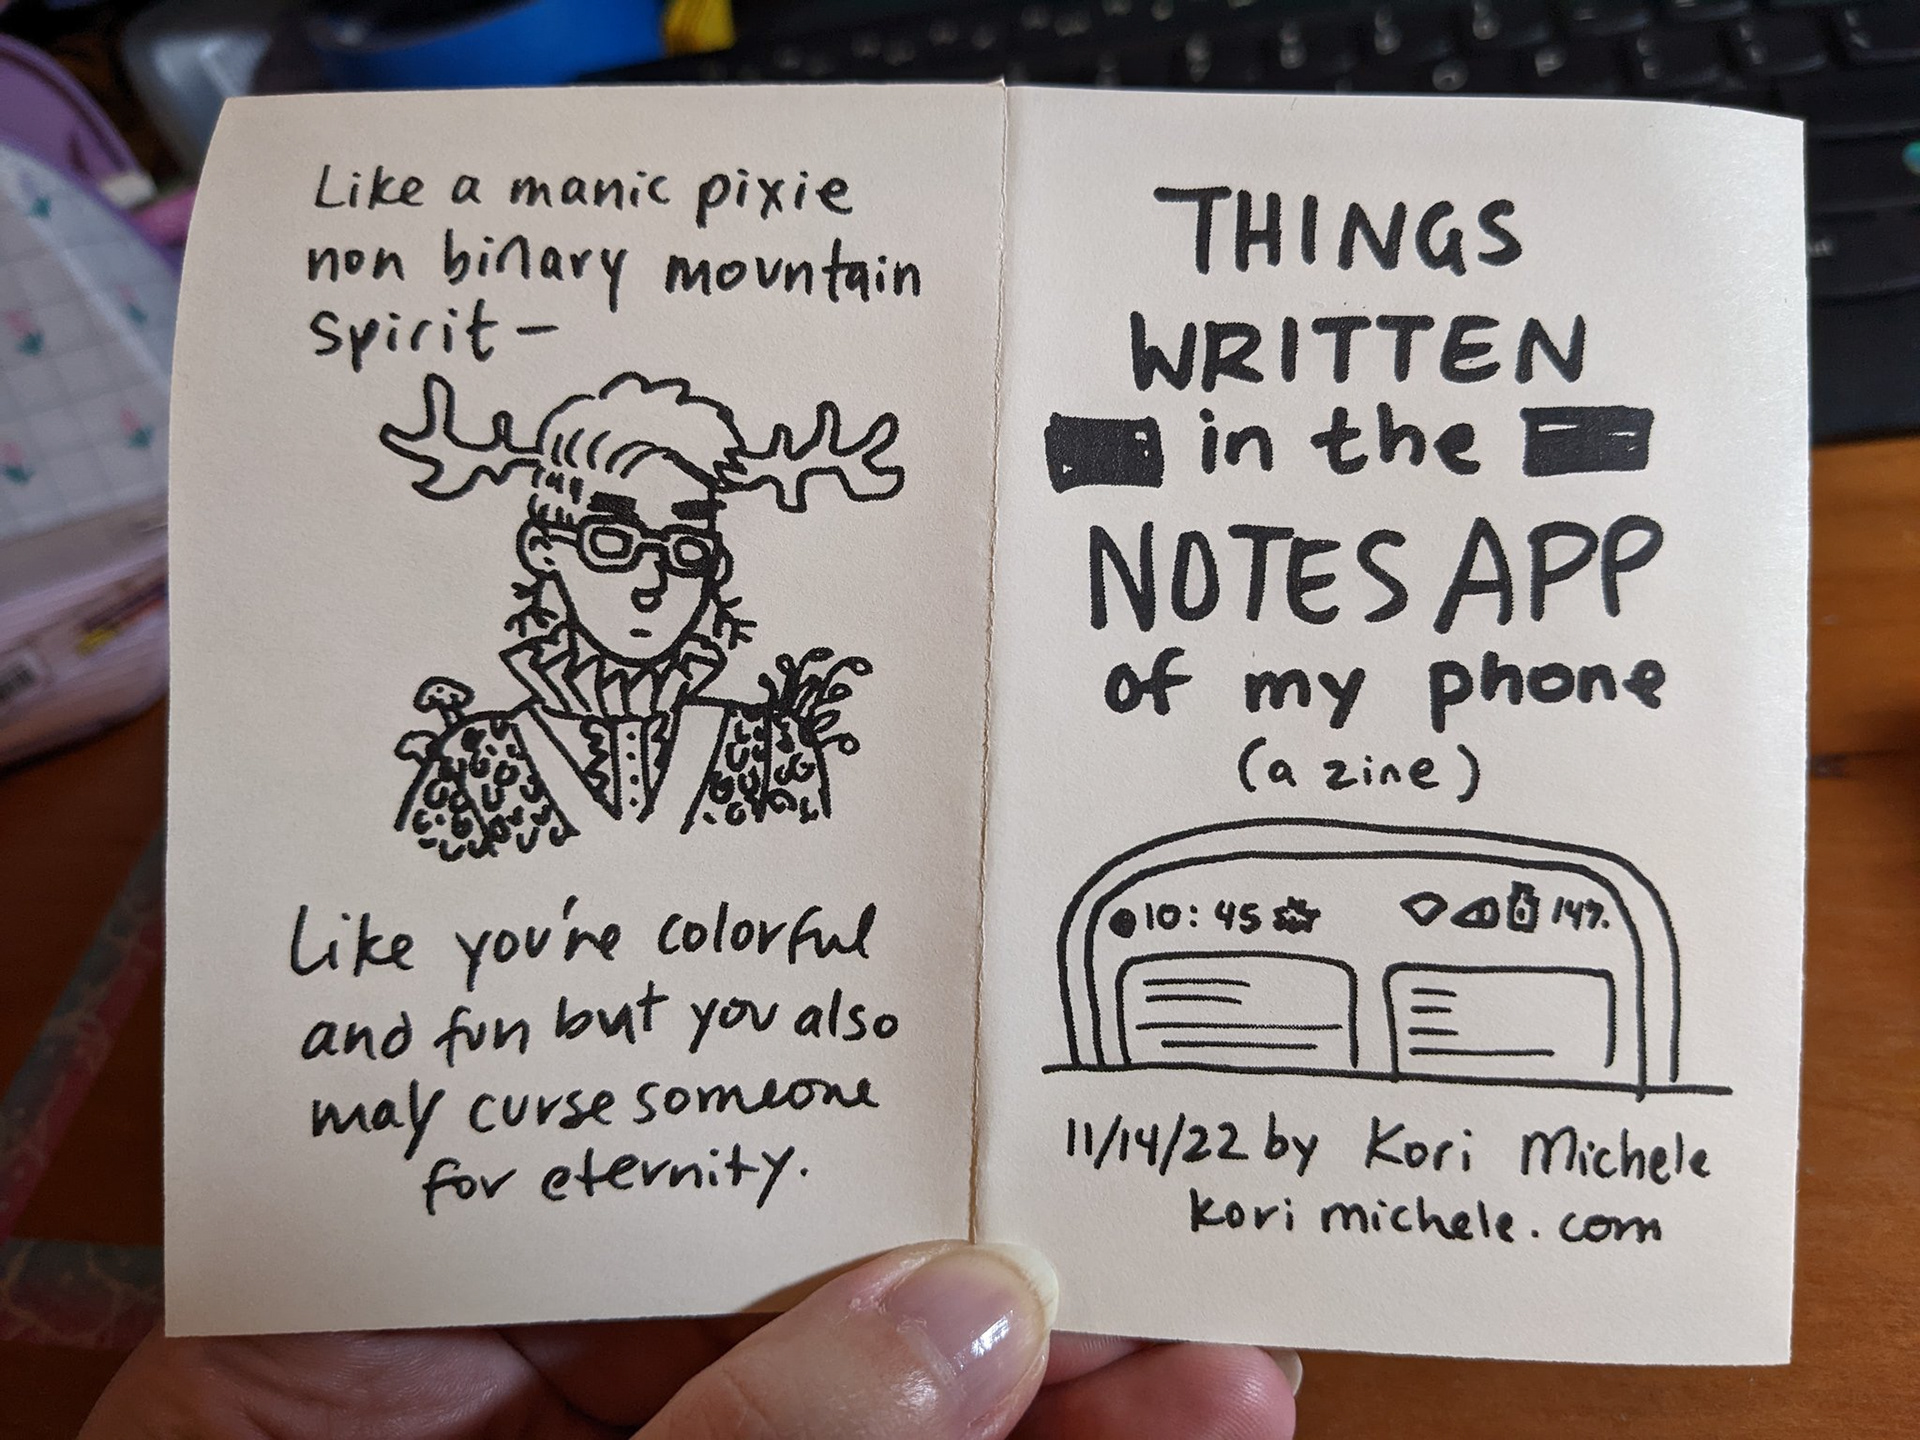 Like a manic pixie
non binary mountain
spirit—
Like you're colorful
and fun but you also
may curse someone
for eternity.
THINGS
WRITTEN
in the
NOTES APP
of my phone
(a zine)
10:45 14%
11/14/22 by Kori Michele
korimichele.com